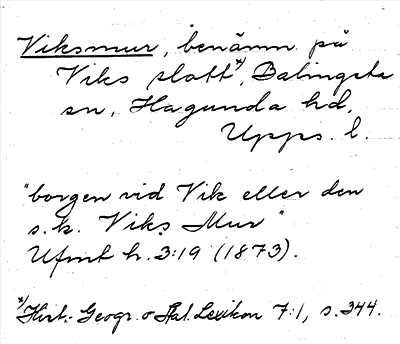 Viksmur, benämn. på
Viks slott*), Balingsta
sn, Hagunda hd,
Upps. l.
"borgen vid Vik eller den
s.k. Viks Mur"
Ufmt h. 3:19 (1873).
*) Hist.-Geogr. o Stat. Lexikon 7:1, s. 344.